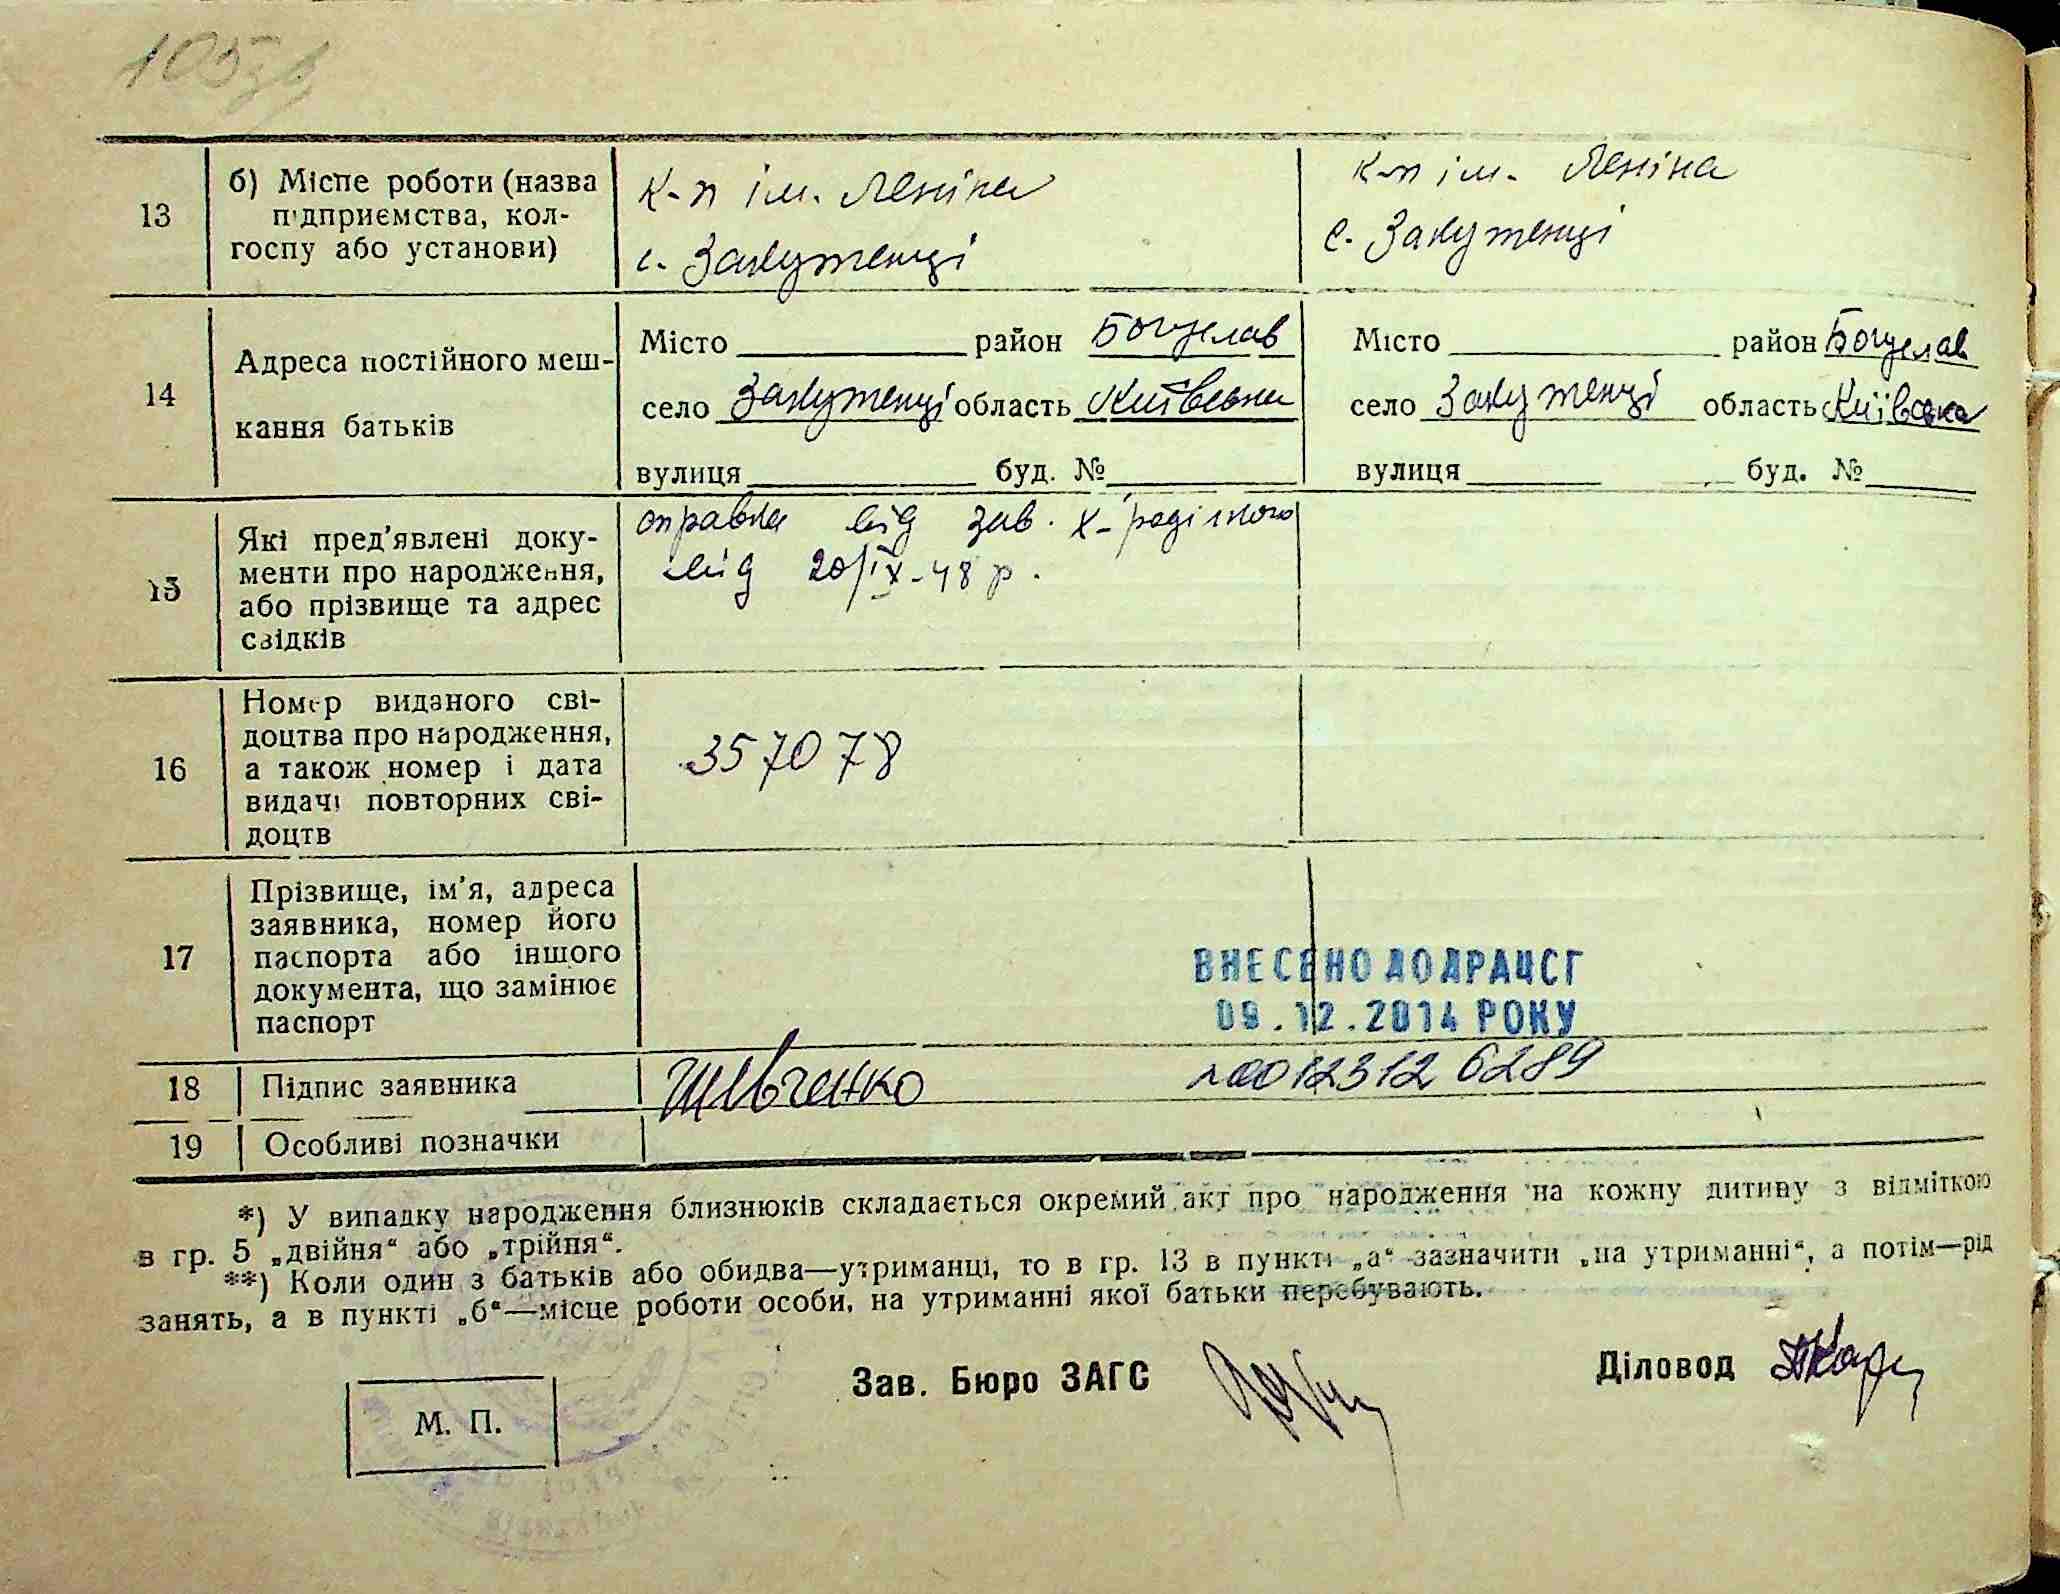 105зв
13
б) Місце роботи (назва
підприємства, кол-
госпу або установи)
к-п ім. Леніна
с. Закутенці
к-п ім. Леніна
с. Закутенці
14
Адреса постійного меш-
кання батьків
Місто район Богуслав
село Закутенці область Київська
вулиця буд. №
Місто район Богуслав
село Закутенці область Київська
вулиця буд. №
15
Які пред'явлені доку-
менти про народження,
або прізвище та адрес
свідків
справка від зав. х-родільного
від 20/IX-48 р.
16
Номер виданого сві-
доцтва про народження,
а також номер і дата
видачі повторних сві-
доцтв
357078
17
Прізвище, ім'я, адреса
заявника, номер його
паспорта або іншого
документа, що замінює
паспорт
ВНЕСЕНО ДО ДРАЦСГ
09.12.2014 РОКУ
18
Підпис заявника
Шевченко
00123126289
19
Особливі позначки
*) У випадку народження близнюків складається окремий акт про народження на кожну дитину з відміткою
в гр. 5 „двійня“ або „трійня“.
**) Коли один з батьків або обидва—утриманці, то в гр. 13 в пункті „а“ зазначити „на утриманні“, а потім—рід
занять, а в пункті „б“—місце роботи особи, на утриманні якої батьки перебувають.
Зав. Бюро ЗАГС
Діловод
М. П.